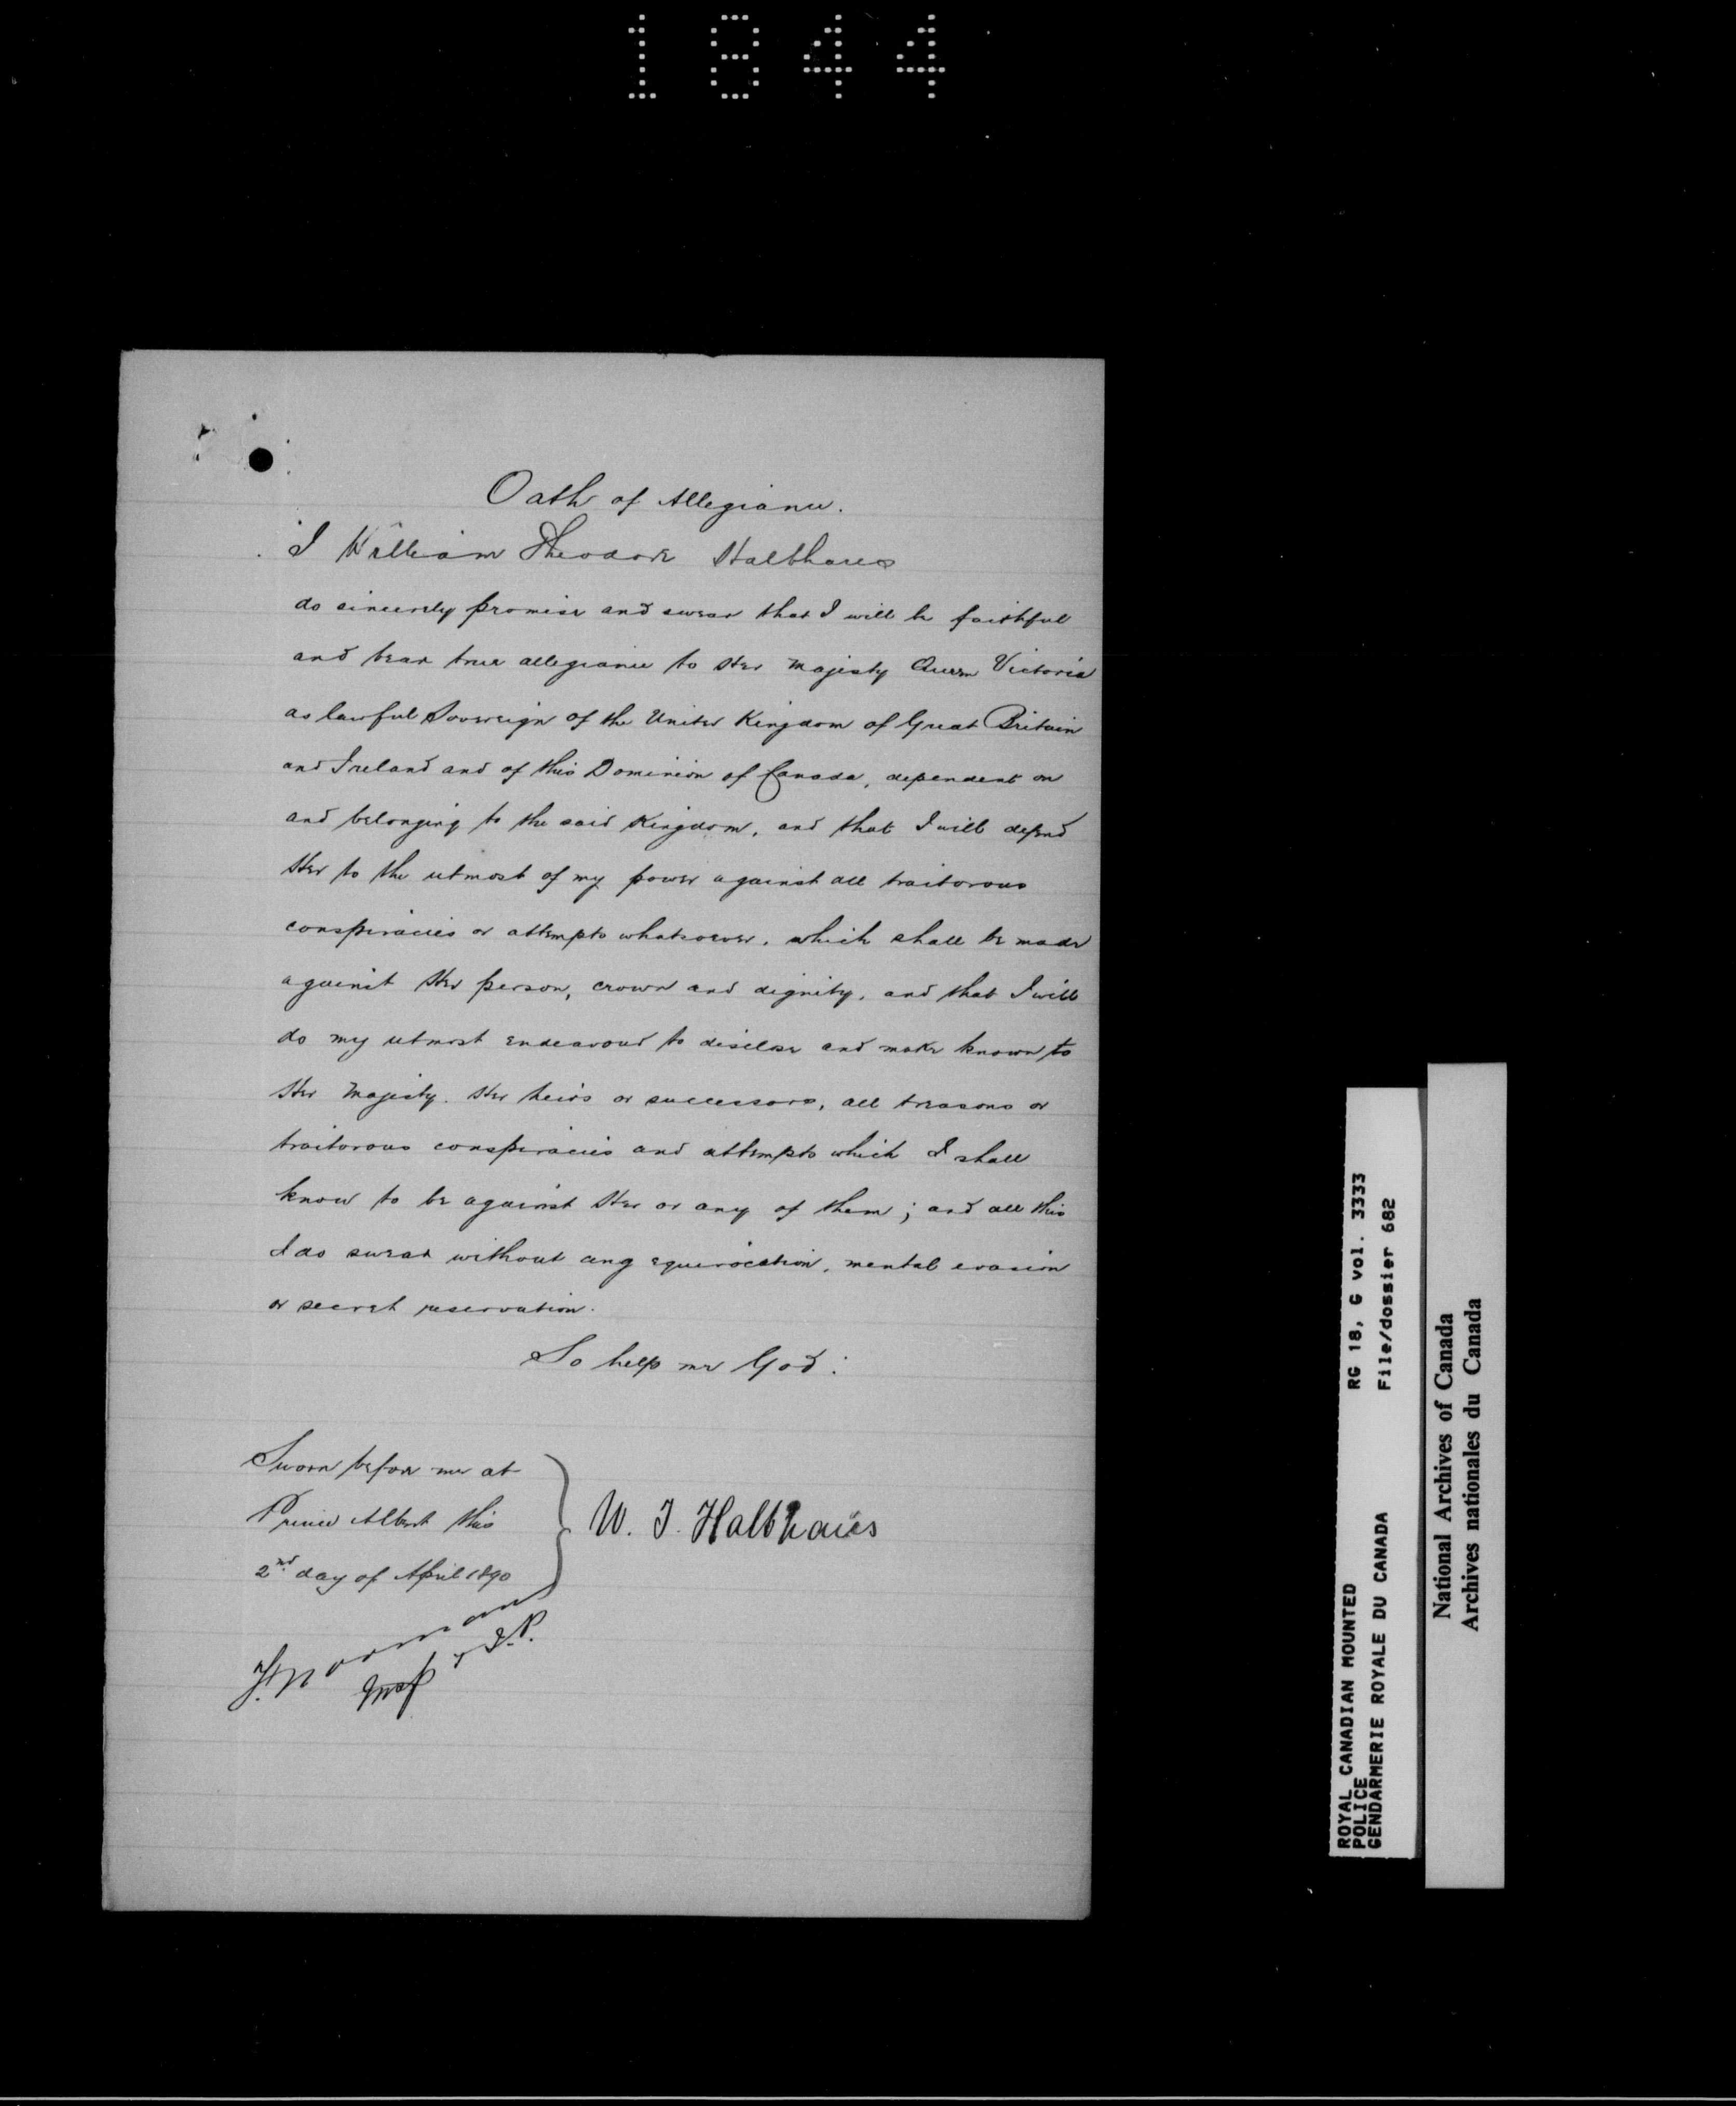 1844
Oath of Allegiance.
I William Theodore Halbhaus
do sincerely promise and swear that I will be faithful
and bear true allegiance to Her Majesty Queen Victoria
as lawful Sovereign of the United Kingdom of Great Britain
and Ireland and of this Dominion of Canada, dependent on
and belonging to the said Kingdom, and that I will defend
Her to the utmost of my power against all traitorous
conspiracies or attempts whatsoever, which shall be made
against Her person, crown and dignity, and that I will
do my utmost endeavour to disclose and make known to
Her Majesty. Her heirs or successors, all treasons or
traitorous conspiracies and attempts which I shall
know to be against Her or any of them; and all this
I do swear without any equivocation, mental evasion
or secret reservation.
So help me God:
Sworn before me at
Prince Albert this
2nd day of April 1890
W. T. Halbhaus
F. Norman
Insp. J.P.
ROYAL CANADIAN MOUNTED RG 18, G vol. 3333
POLICE File/dossier 682
GENDARMERIE ROYALE DU CANADA
National Archives of Canada
Archives nationales du Canada